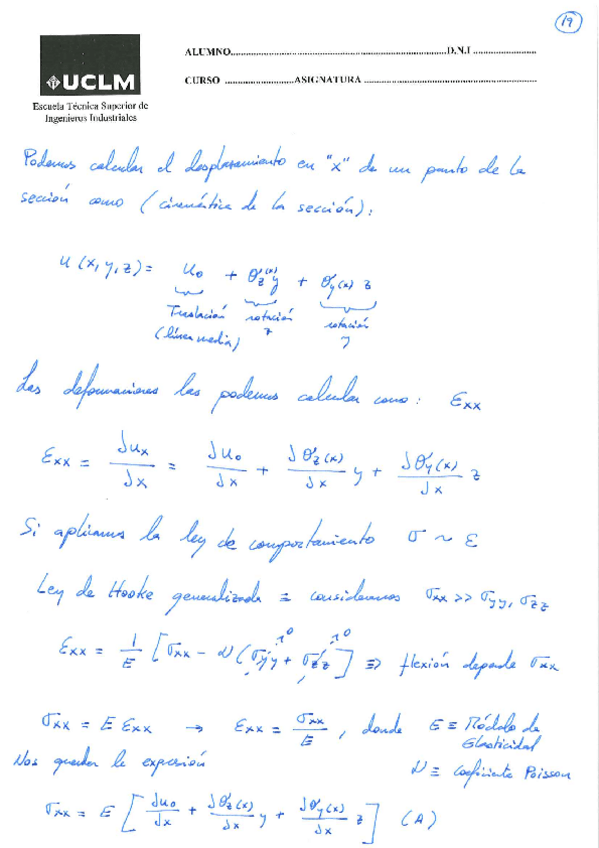 19
UCLM
Escuela Técnica Superior de
Ingenieros Industriales
ALUMNO.......................................................................D.N.I ......................
CURSO .......................ASIGNATURA ..........................................................
Podemos calcular el desplazamiento en "x" de un punto de la
sección como (cinemática de la sección):
u(x,y,z) = u₀ + θz(x) y + θy(x) z
Traslación rotación rotación
(línea media) z y
Las deformaciones las podemos calcular como: Exx
Exx = ∂ux/∂x = ∂u₀/∂x + ∂θz(x)/∂x y + ∂θy(x)/∂x z
Si aplicamos la ley de comportamiento σ ~ ε
Ley de Hooke generalizada ≡ consideramos σxx >> σyy, σzz
Exx = 1/E [σxx - ν (σyy→0 + σzz→0] ⇒ flexión depende σxx
σxx = E Exx → Exx = σxx/E, donde E ≡ Módulo de
Elasticidad
Nos queda la expresión ν ≡ coeficiente Poisson
σxx = E [∂u₀/∂x + ∂θz(x)/∂x y + ∂θy(x)/∂x z] (A)